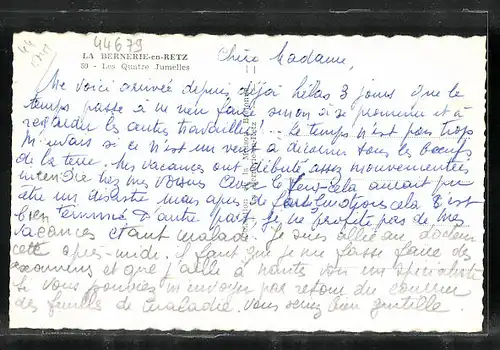 44679
LA BERNERIE-en-RETZ
50 - Les Quatre Jumelles
Chère Madame,
Me voici arrivée depuis déjà hélas 3 jours que le
temps passe à ne rien faire sinon si se promener et à
regarder les autres travailler... Le temps n'est pas trop
mauvais si ce n'est un vent à décorner tous les boeufs
de la terre. Mes vacances ont débuté assez mouvementées
incendie chez nos voisins cela aurait pu
être un désastre mais après cela s'est
bien terminé d'autre part, je ne profite pas de mes
vacances étant malade. Je suis allée au docteur
cette après-midi. Il faut que je me fasse faire des
examens et que j'aille à Nantes voir un spécialiste
Si vous pouviez m'envoyer par retour du courrier
des feuilles de maladie. vous serez bien gentille.